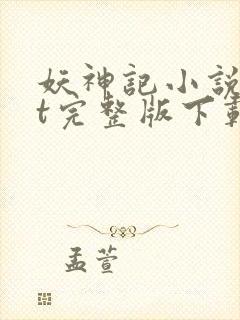 妖神記小說
t完整版下載
孟萱